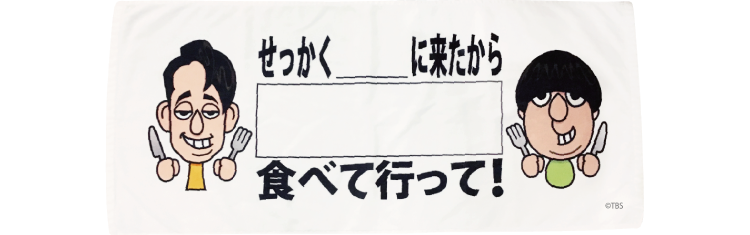 せっかく＿＿＿に来たから
食べて行って！
©TBS